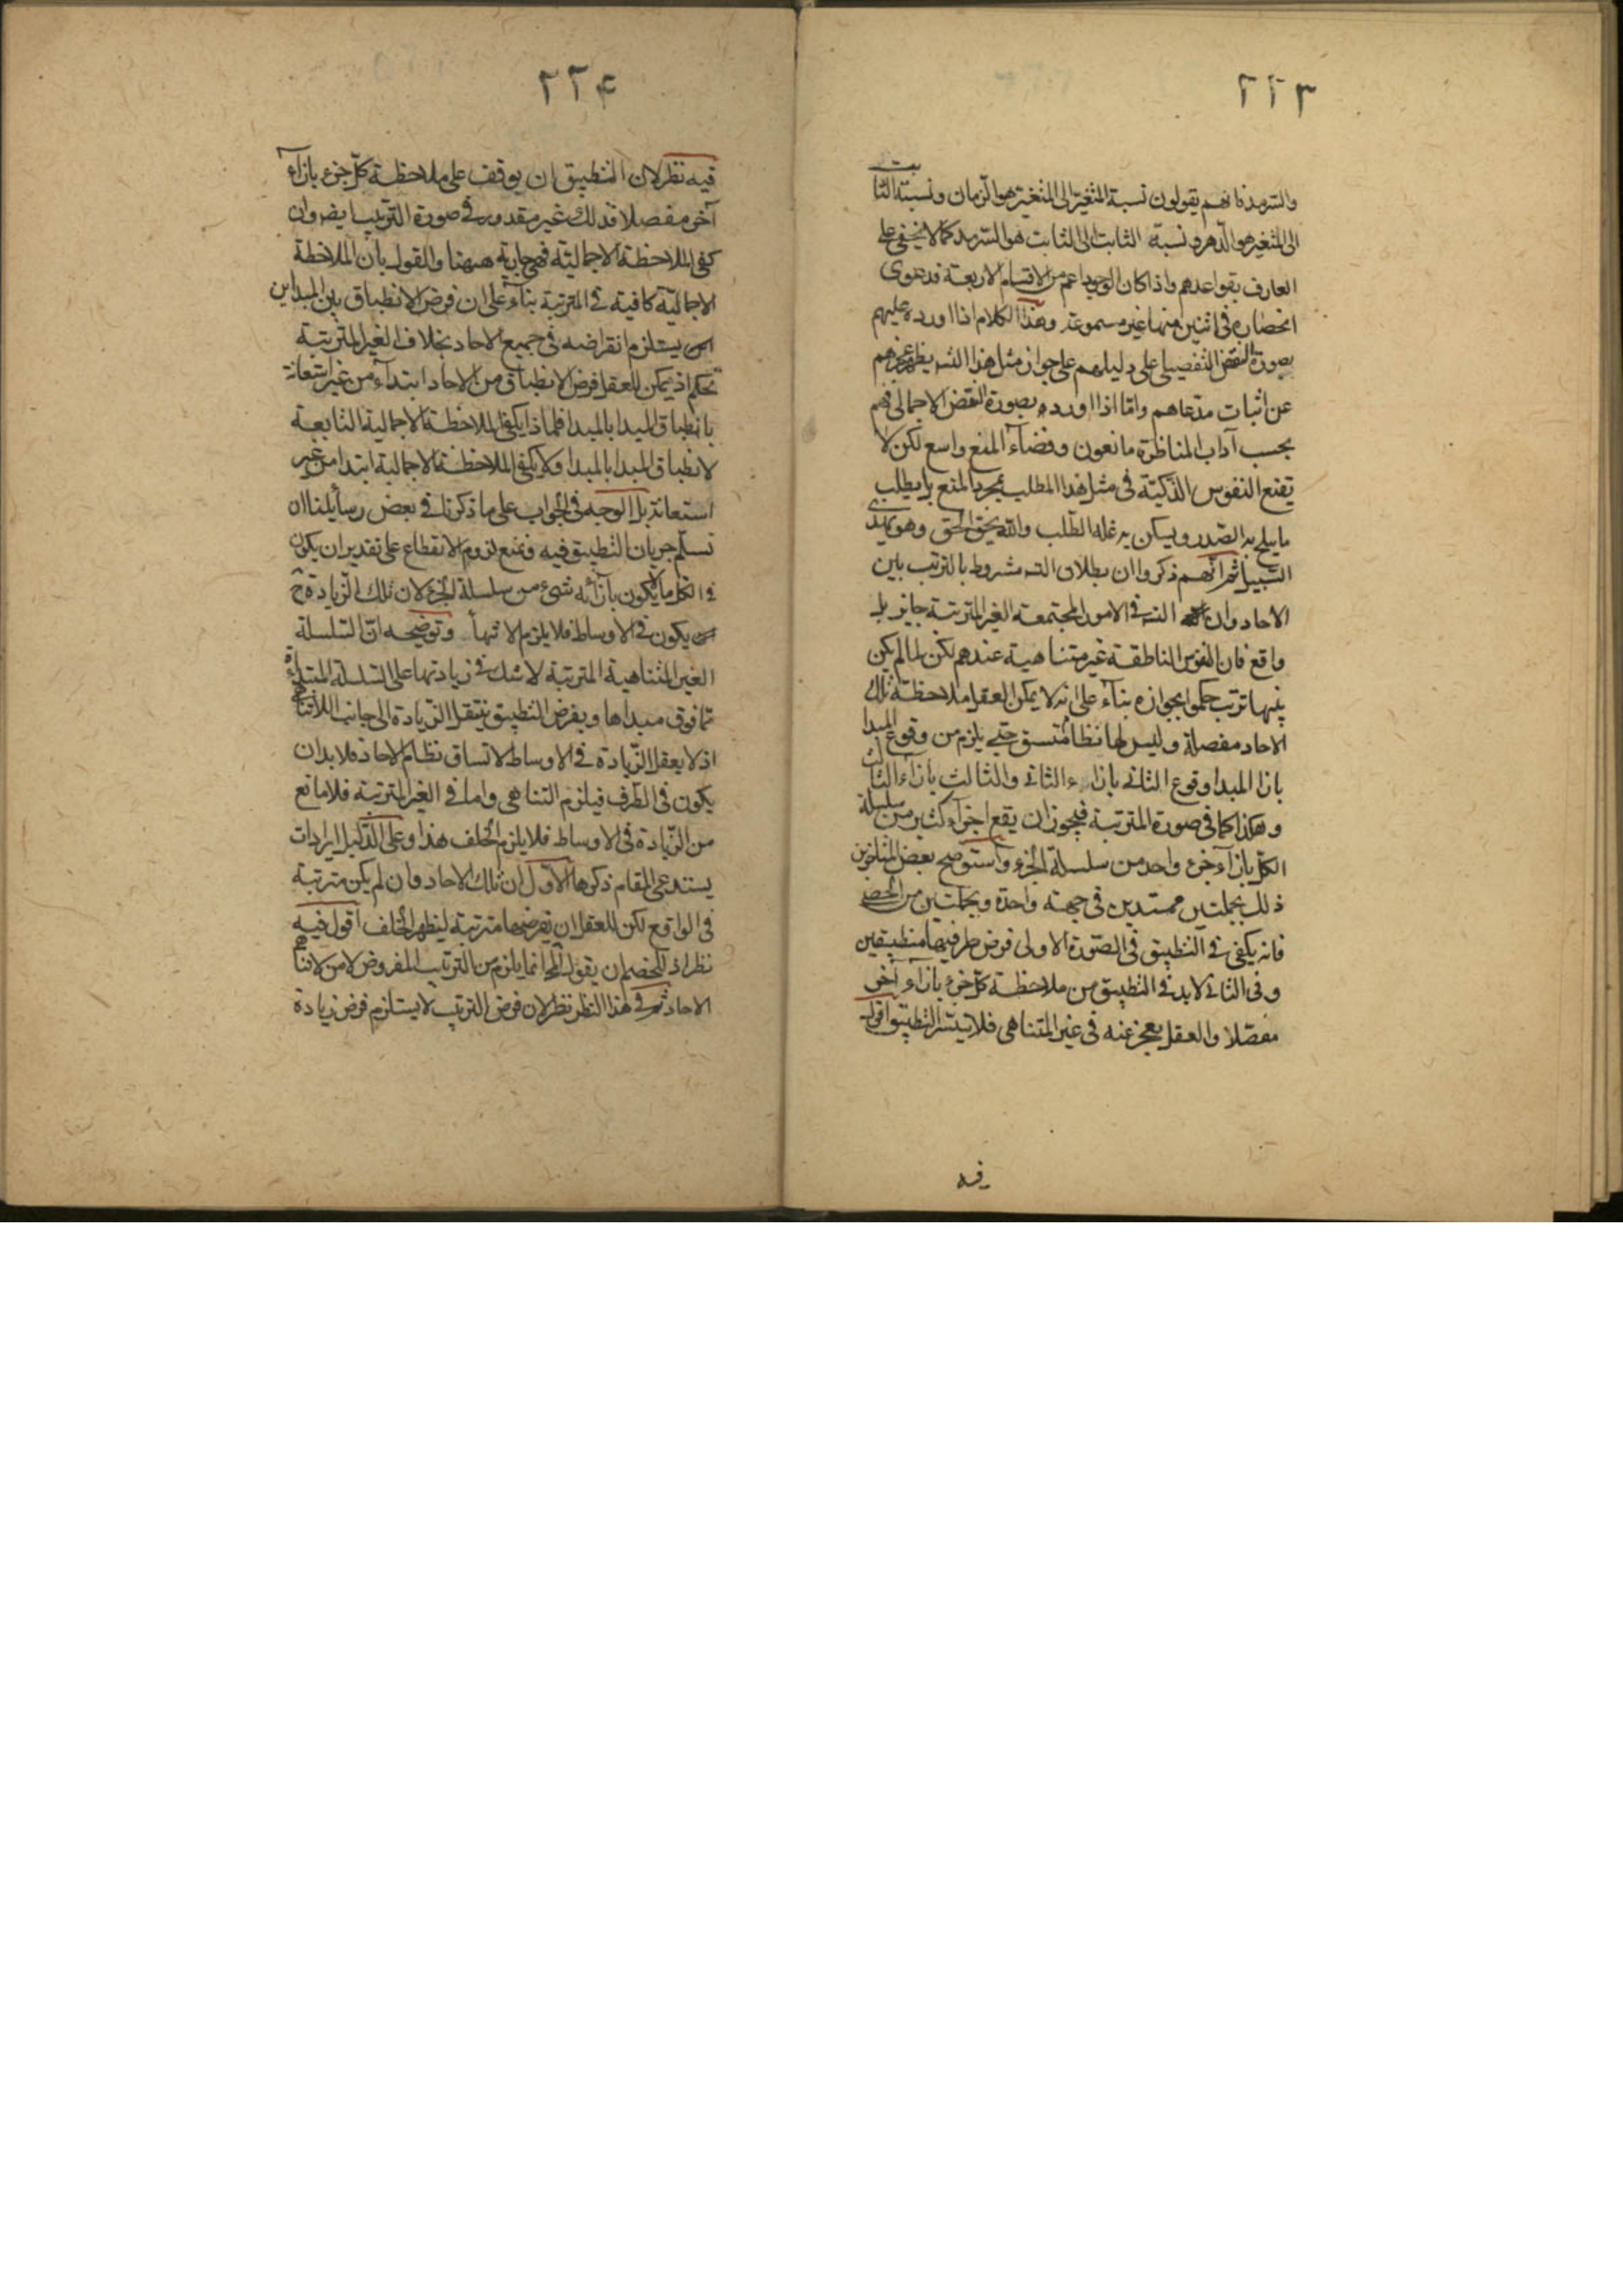 ٢٢٣
والسرمد فانهم يقولون نسبة المتغير الى المتغير هو الزمان ونسبة الثابت
الى المتغير هو الدهر ونسبة الثابت الى الثابت هو السرمد كما لا يخفى على
العارف بقواعدهم واذا كان الوجود اعم من الاقسام الاربعة فدعوى
انحصاره فى اثنين منها غير مسموعة وهذا الكلام اذا اورده عليهم
بصورة النقض التفصيلى على دليلهم على جواز مثل هذا التسـ يظهر عجزهم
عن اثبات مدعاهم واما اذا اورده بصورة النقض الاجمالى فهم
بحسب آداب المناظرة مانعون وفضاء المنع واسع لكن لا
تقنع النفوس الذكية فى مثل هذا المطلب بمجرد المنع بل يطلب
ما يثلج به الصدر ويسكن به غلة الطلب والله يحق الحق وهو يهدى
السبيل ثم انهم ذكروا ان بطلان التسـ مشروط بالترتب بين
الاحاد وان التسـ فى الامور المجتمعة الغير المترتبة جايز بل
واقع فان النفوس الناطقة غير متناهية عندهم لكن لما لم يكن
بينها ترتب حكموا بجوازه بناء على انه لا يمكن العقل ملاحظة تلك
الاحاد مفصلة وليس لها نظام متسق حتى يلزم من وقوع المبدا
بازا المبدا وقوع الثانى بازاء الثانى والثالث بازاء الثالث
وهكذا كما فى صورة المترتبة فيجوز ان يقع اجزاء كثير من سلسلة
الكل بازاء جزء واحد من سلسلة الجزء واستوضح بعض المتاخرين
ذلك بجملتين ممتدين فى جهة واحدة وبجملتين من الحصى
فانه يكفى فى التطبيق فى الصورة الاولى فرض طرفيهما منطبقين
وفى الثانى لا بد فى التطبيق من ملاحظة كل جزء بازاء آخر
مفصلا والعقل يعجز عنه فى غير المتناهى فلا يتيسر التطبيق اقول
فيه
٢٢٤
فيه نظر لان التطبيق ان يوقف على ملاحظة كل جزء بازاء
آخر مفصلا فذلك غير مقدور فى صورة الترتيب ايضا وان
كفى الملاحظة الاجمالية فهى جارية ههنا والقول بان الملاحظة
الاجمالية كافية فى المترتبة بناء على ان فرض الانطباق بين المبداين
يستلزم انقراضه فى جميع الاحاد بخلاف الغير المترتبة
تحكم اذ يمكن للعقل فرض الانطباق من الاحاد ابتداء من غير استعانة
بانطباق المبدا بالمبدا فلماذا يكفى الملاحظة الاجمالية التابعة
لانطباق المبدا بالمبدا ولا يكفى الملاحظة الاجمالية ابتدا من غير
استعانة بل الوجه فى الجواب على ما ذكرنا فى بعض رسائلنا ان
نسلم جريان التطبيق فيه ونمنع لزوم الانقطاع على تقدير ان يكون
فى الكل ما لا يكون بازائه شىء من سلسلة الجزء لان تلك الزيادة ح
يكون فى الاوساط فلا يلزم الانتهاء وتوضيحه ان السلسلة
الغير المتناهية المترتبة لا شك فى زيادتها على السلسلة المبتداة
مما فوق مبداها وبفرض التطبيق ينتقل الزيادة الى جانب اللاتناهى
اذ لا يعقل الزيادة فى الاوساط لاتساق نظام الاحاد فلا بد ان
يكون فى الطرف فيلزم التناهى واما فى الغير المترتبة فلا مانع
من الزيادة فى الاوساط فلا يلزم الخلف هذا وعلى الدليل ايرادات
يستدعى المقام ذكرها الاول ان تلك الاحاد وان لم يكن مترتبة
فى الواقع لكن للعقل ان يفرضها مترتبة ليظهر الخلف اقول فيه
نظر اذ للخصم ان يقول المحـ انما يلزم من الترتيب المفروض لا من لاتناهى
الاحاد ثم فى هذا النظر نظر لان فرض الترتيب لا يستلزم فرض زيادة